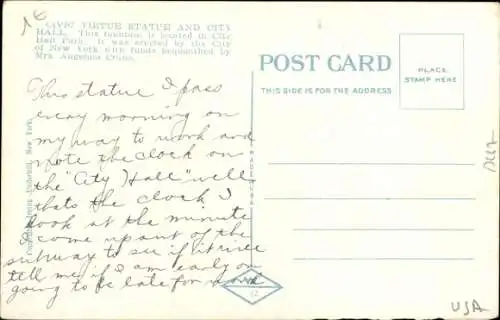 CIVIC VIRTUE STATUE AND CITY
HALL. This fountain is located in City
Hall Park. It was erected by the City
of New York with funds bequeathed by
Mrs. Angelina Crane.
This statue I pass
every morning on
my way to work and
note the clock on
the "City Hall" well
thats the clock I
look at the minute
I come up out of the
subway to see if it will
tell me if I am early or
going to be late for work
POST CARD
THIS SIDE IS FOR THE ADDRESS
PLACE
STAMP HERE
USA